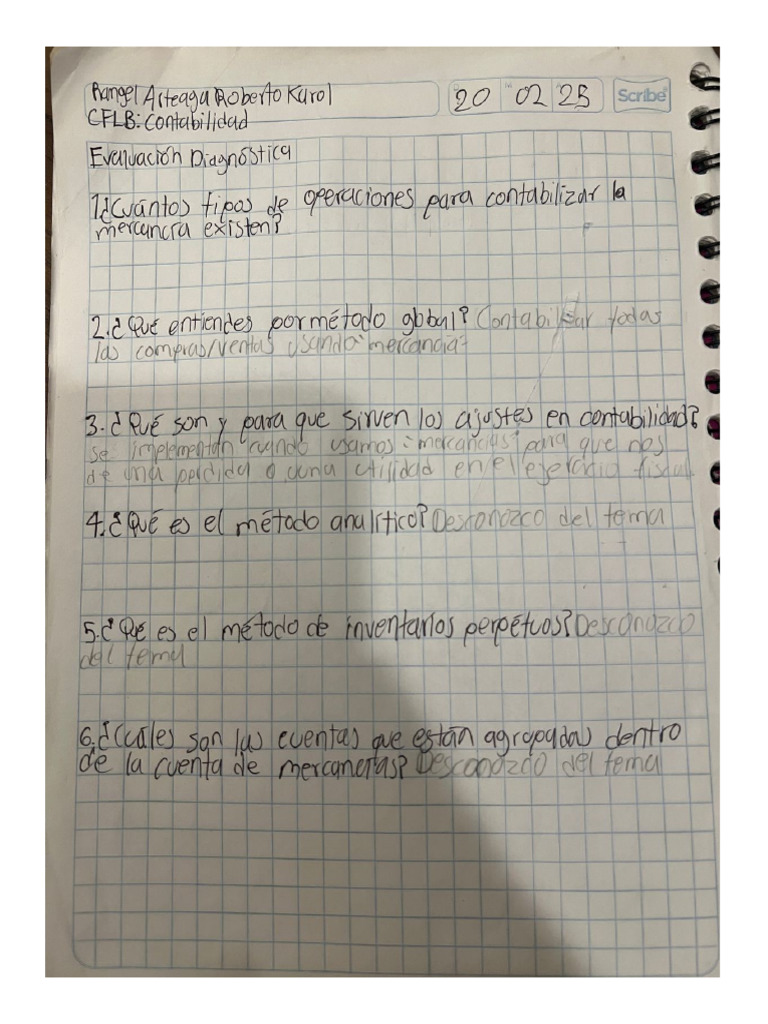 Rangel Arteaga Roberto Karol
20 02 25
Scribe
CFLB: Contabilidad
Evaluación Diagnóstica
1.¿Cuántos tipos de operaciones para contabilizar la
mercancía existen?
2.¿Qué entiendes por método global? Contabilizar todas
las compras/ventas usando "mercancía"
3.¿Qué son y para que sirven los ajustes en contabilidad?
se implementan cuando usamos "mercancías" para que nos
de una perdida o una utilidad en el ejercicio fiscal
4.¿Qué es el método analítico? Desconozco del tema
5.¿Qué es el método de inventarios perpétuos? Desconozco
del tema
6.¿Cuáles son las cuentas que están agrupadas dentro
de la cuenta de mercancías? Desconozco del tema